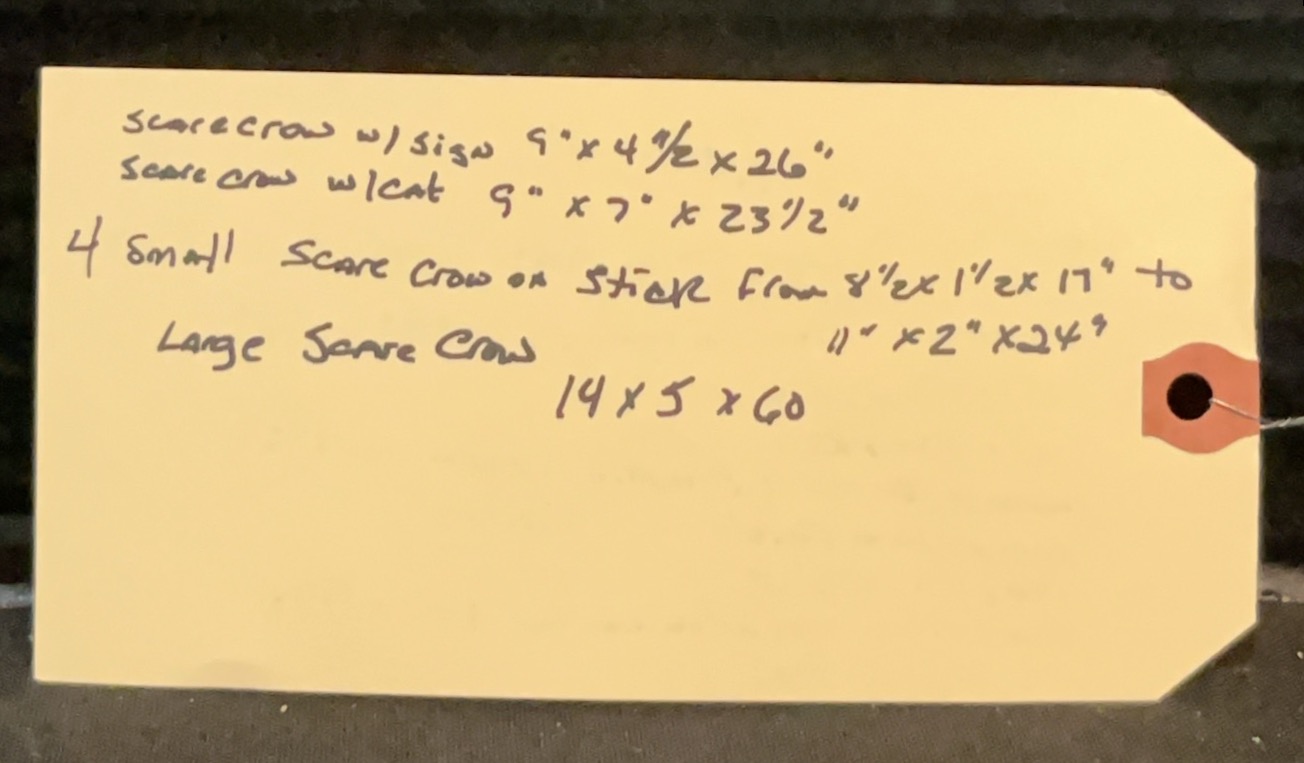 Scarecrow w/ sign 9" x 4 1/2 x 26"
Scarecrow w/cat 9" x 7" x 23 1/2"
4 Small Scare Crow on Stick From 8 1/2 x 1 1/2 x 17" to
11" x 2" x 24"
Large Scare Crow
14 x 5 x 60